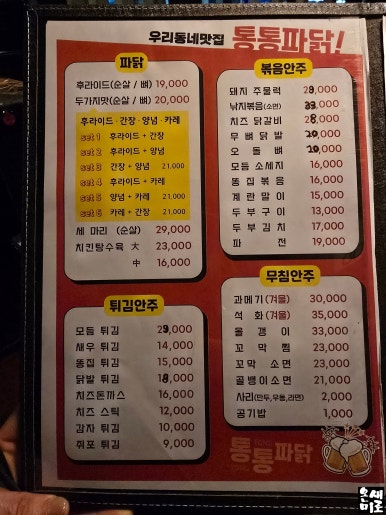 우리동네맛집 통통파닭!
파닭
후라이드(순살 / 뼈) 19,000
두가지맛(순살 / 뼈) 20,000
후라이드 · 간장 · 양념 · 카레
set 1 후라이드 + 간장
set 2 후라이드 + 양념
set 3 간장 + 양념 21,000
set 4 후라이드 + 카레
set 5 양념 + 카레 21,000
set 6 카레 + 간장 21,000
세 마리 (순살) 29,000
치킨탕수육 大 23,000
中 16,000
튀김안주
모듬 튀김 23,000
새우 튀김 14,000
똥집 튀김 15,000
닭발 튀김 18,000
치즈돈까스 16,000
치즈 스틱 12,000
감자 튀김 10,000
쥐포 튀김 9,000
볶음안주
돼지 주물럭
낙지볶음(소면)
치즈 닭갈비
무뼈 닭발 20,000
오 돌 뼈 20,000
모듬 소세지 16,000
똥집 볶음 16,000
계란말이 15,000
두부구이 13,000
두부김치 17,000
파 전 19,000
무침안주
과메기(겨울) 30,000
석 화(겨울) 35,000
올 갱 이 33,000
꼬 막 찜 23,000
꼬막 소면 23,000
골뱅이소면 21,000
사리(만두,우동,라면) 2,000
공기밥 1,000
통통파닭
손에
미로